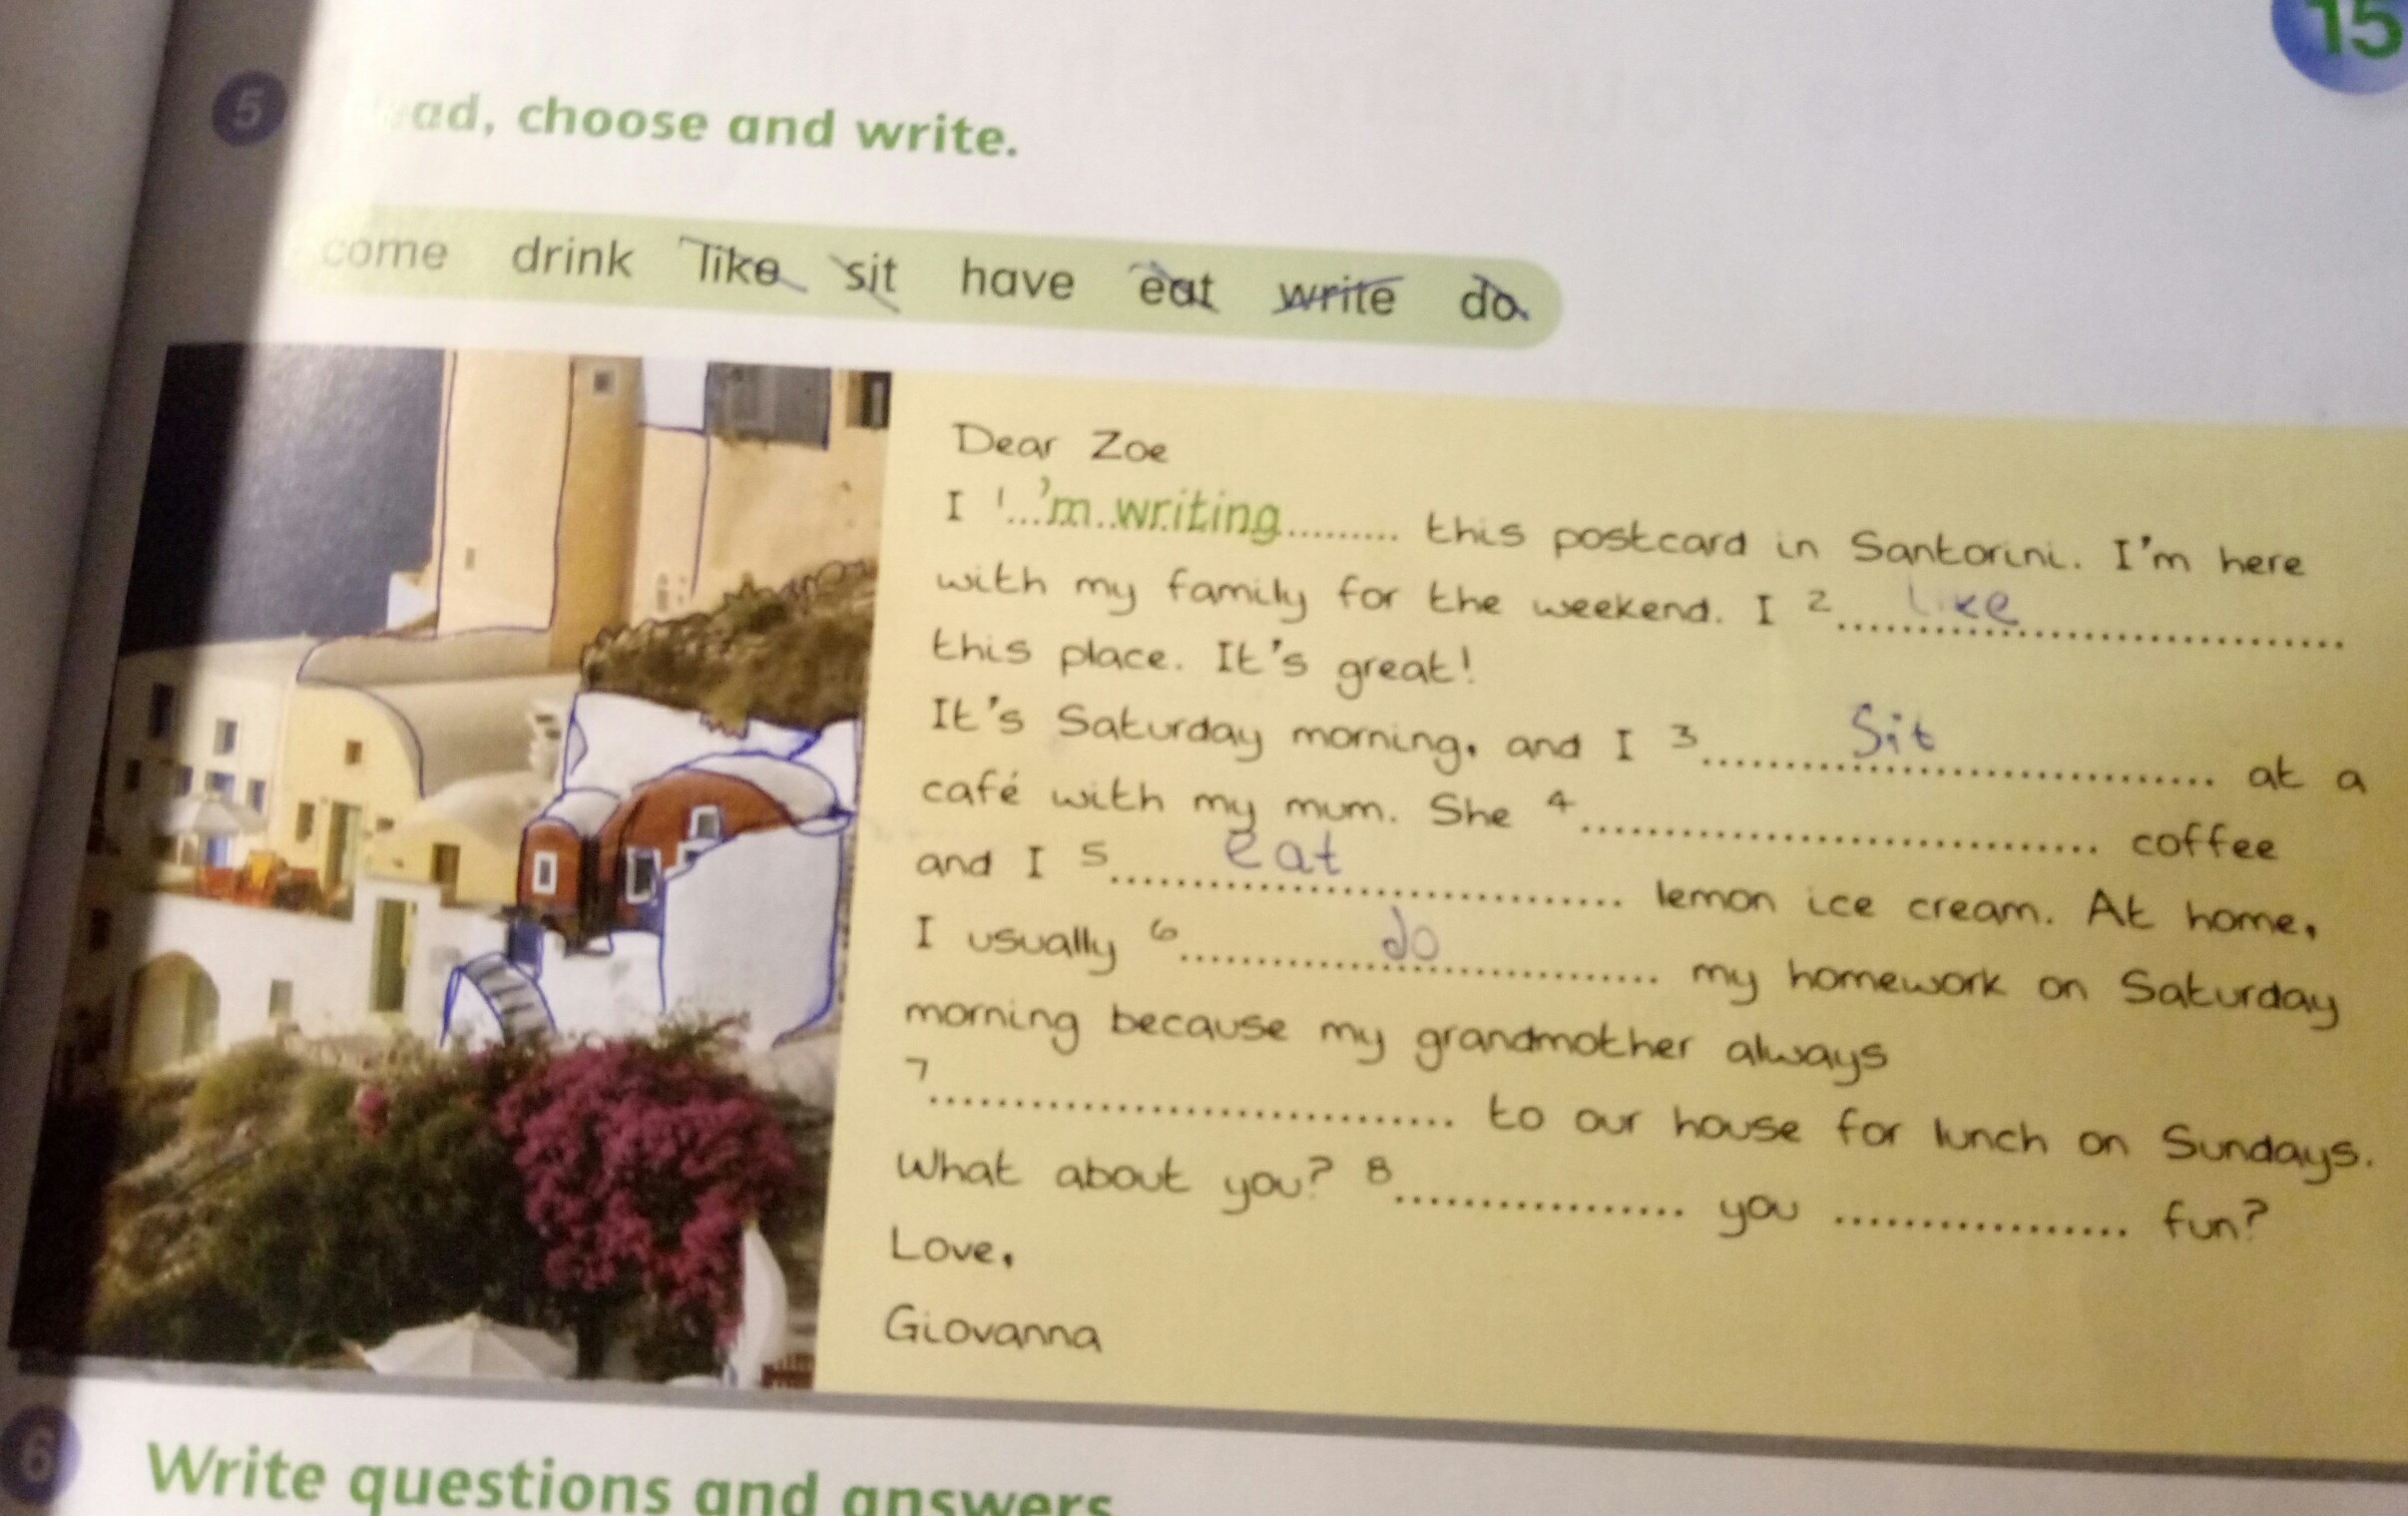 15
5 ad, choose and write.
come drink like sit have eat write do
Dear Zoe
I 1...'m writing.......... this postcard in Santorini. I'm here
with my family for the weekend. I 2 like
this place. It's great!
It's Saturday morning, and I 3 Sit at a
café with my mum. She 4.................................. coffee
and I 5 eat lemon ice cream. At home,
I usually 6 do my homework on Saturday
morning because my grandmother always
7.................................. to our house for lunch on Sundays.
What about you? 8.................. you .................. fun?
Love,
Giovanna
6 Write questions and answers